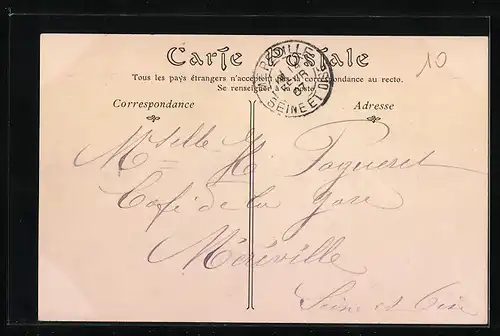 Carte Postale
Tous les pays étrangers n'acceptent pas la correspondance au recto.
Se renseigner à la poste
Correspondance
Adresse
10
MEREVILLE
SEINE ET OISE
Mselle H. Pagueret
Café de la gare
Méréville
Seine et Oise